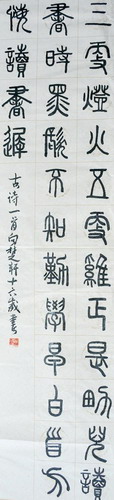 三更燈火五更雞正是男兒讀
書時黑髮不知勤學早白首方
悔讀書遲
古诗一首
十六歲書